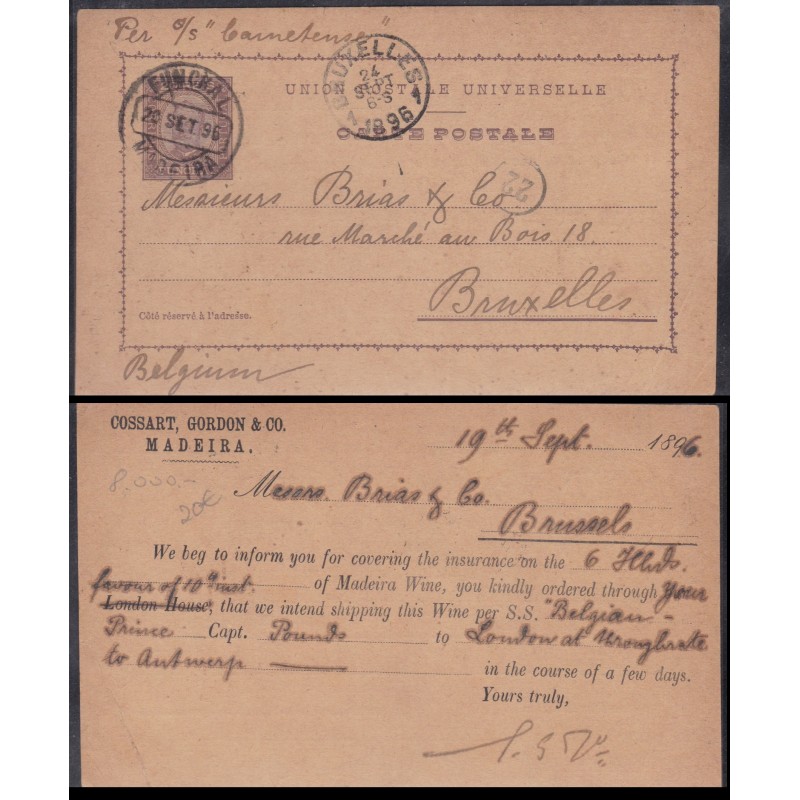 Per s/s "Carnetense"
BRUXELLES
24
SEPT
6-S
1896
FUNCHAL
20 SET. 96
MADEIRA
UNION POSTALE UNIVERSELLE
CARTE POSTALE
22
Messieurs Brias & Co
rue Marché au Bois 18.
Bruxelles
Côté réservé à l'adresse.
Belgium
COSSART, GORDON & CO.
MADEIRA.
19th Sept. 1896.
8.000.-
20€
Messrs. Brias & Co.
Brussels
We beg to inform you for covering the insurance on the 6 Hhds.
favour of 10th inst. of Madeira Wine, you kindly ordered through your
London House, that we intend shipping this Wine per S.S. "Belgian-
Prince Capt. Pounds to London at throughrate
to Antwerp in the course of a few days.
Yours truly,